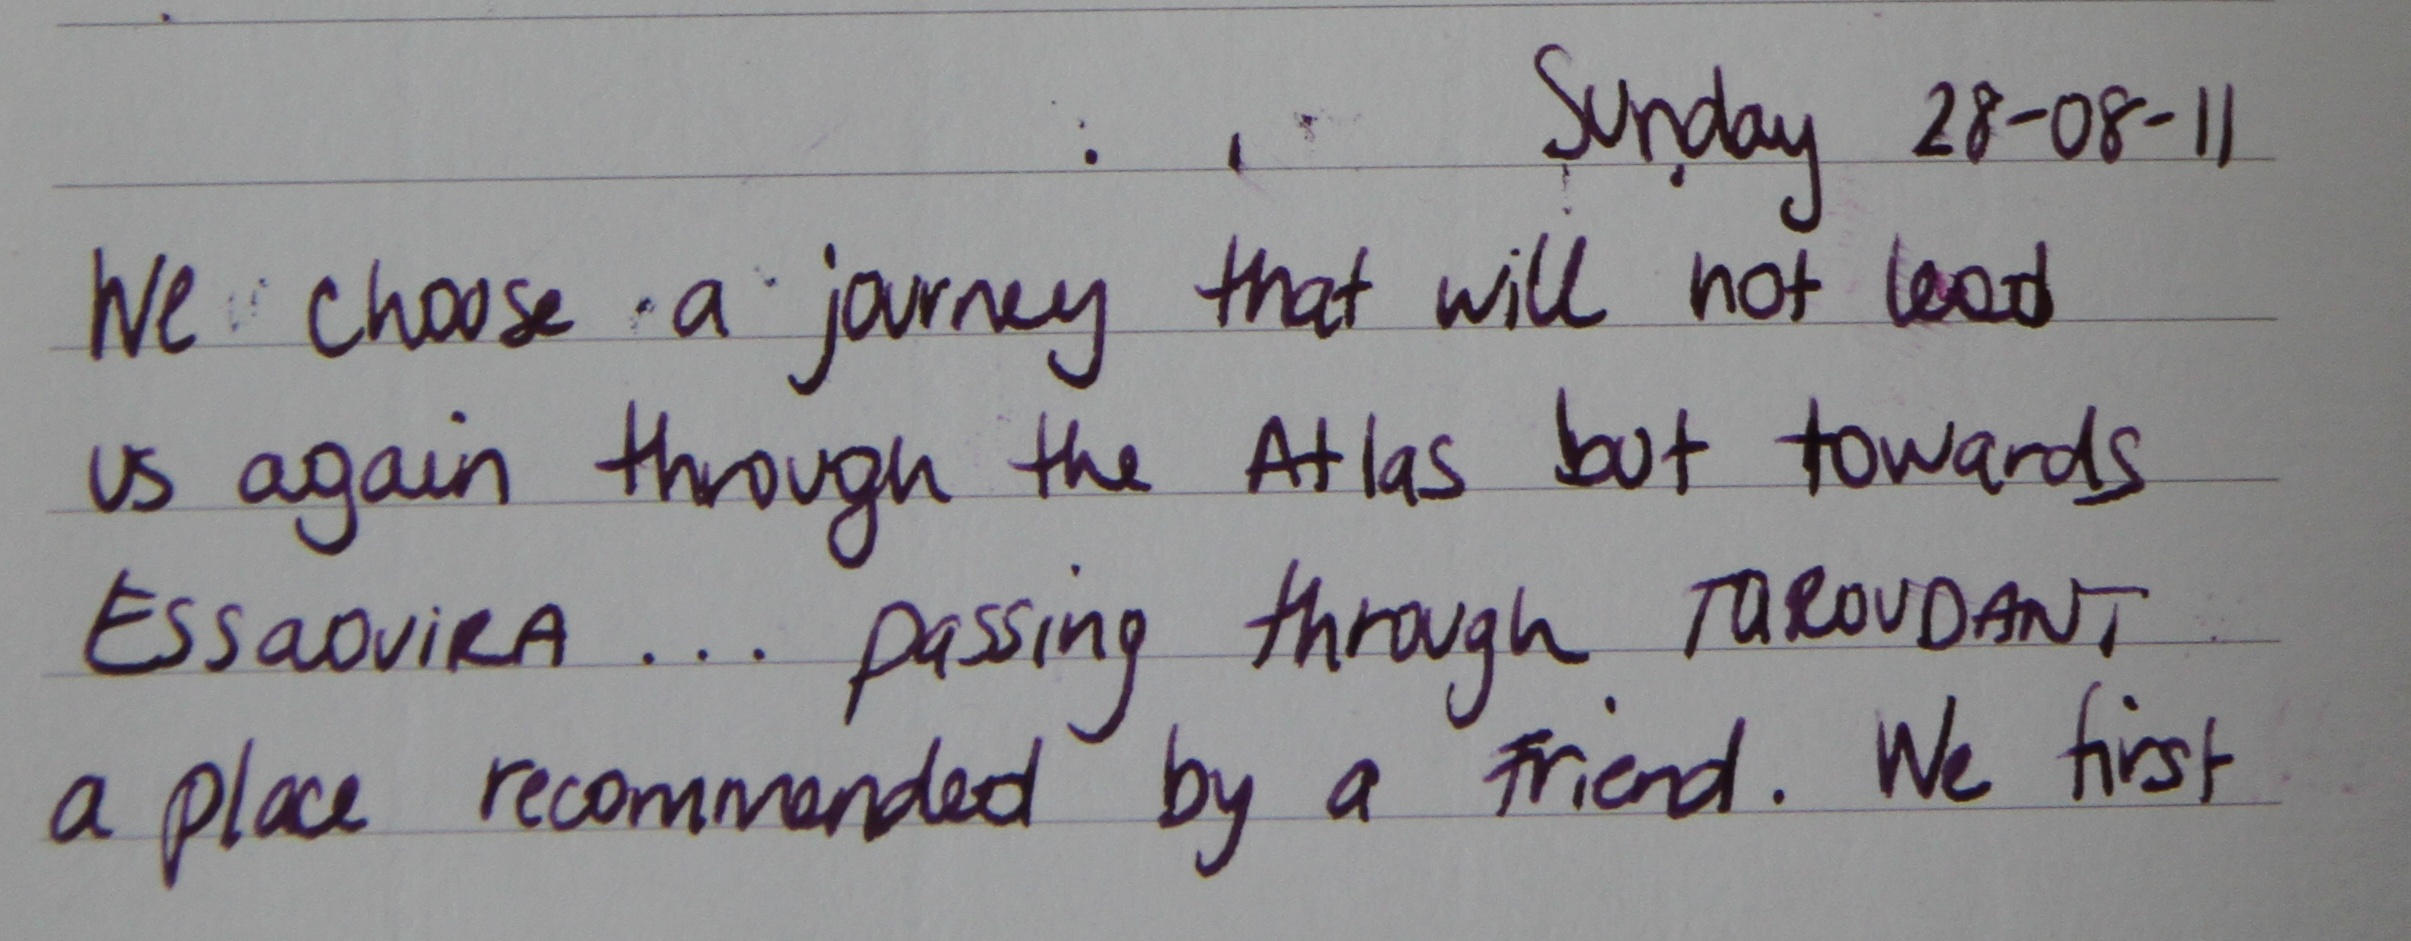 Sunday 28-08-11
We choose a journey that will not lead
us again through the Atlas but towards
ESSAOUIRA ... passing through TAROUDANT
a place recommended by a friend. We first